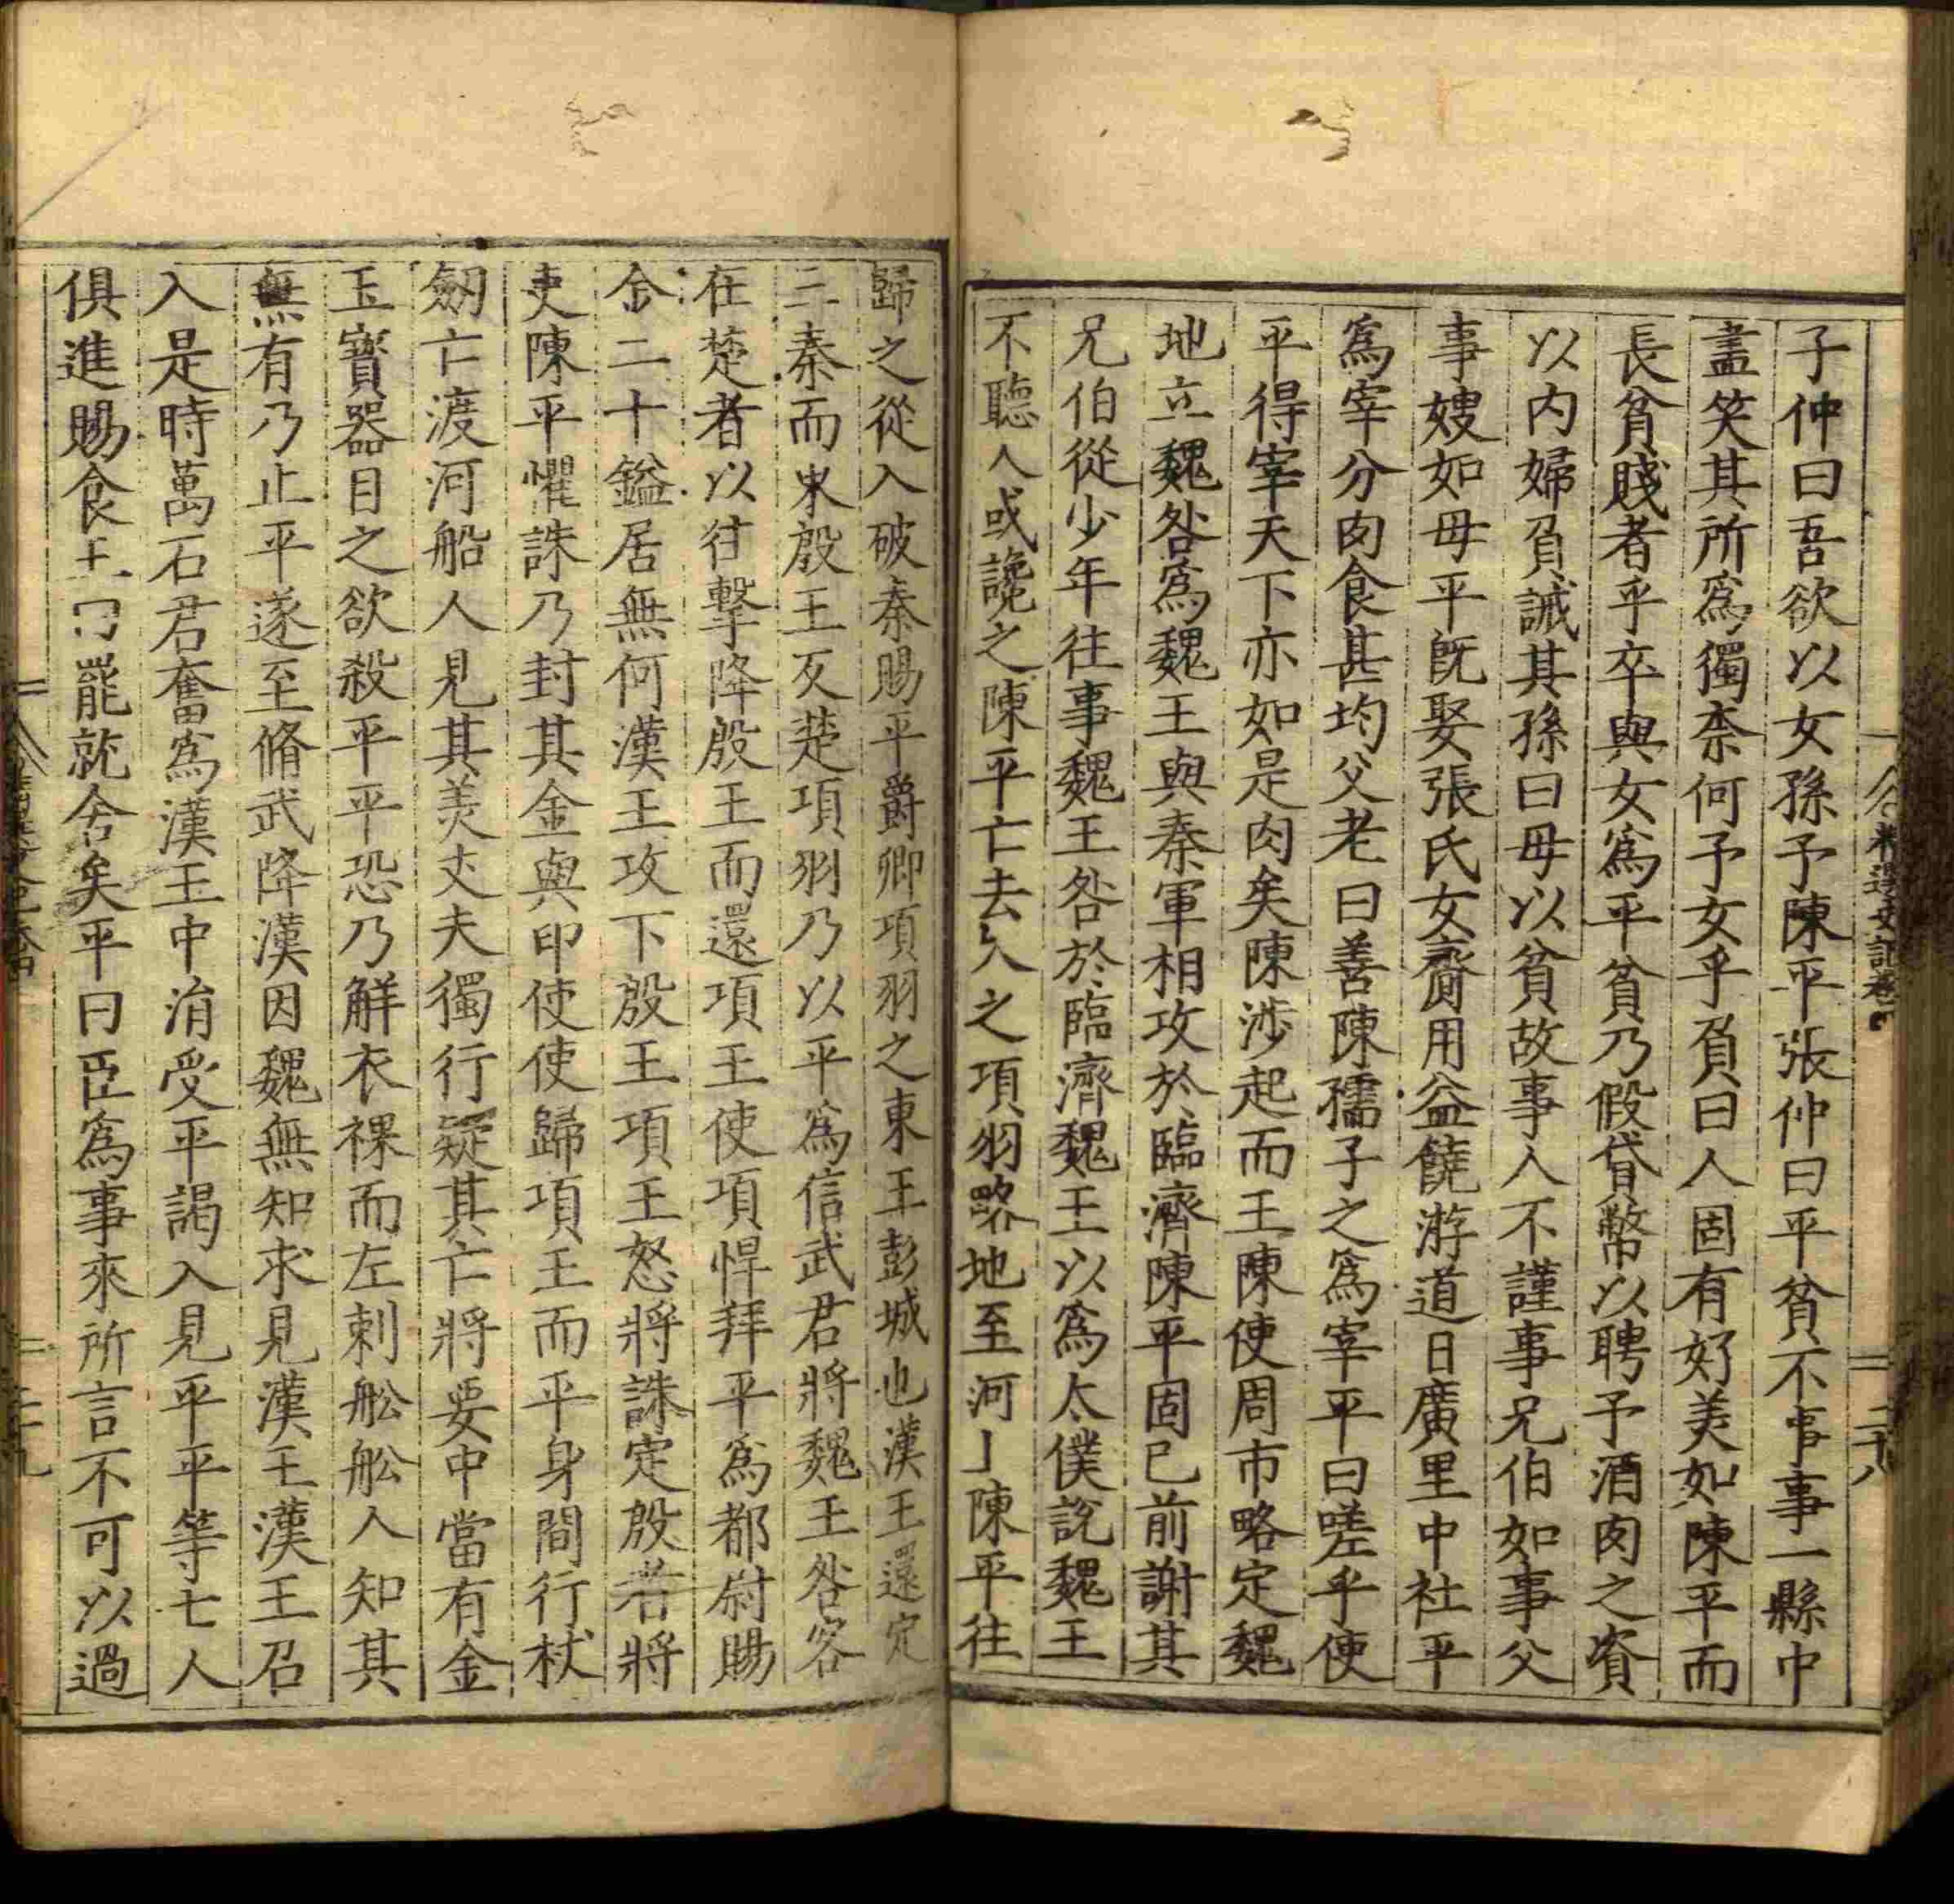 子仲曰吾欲以女孫予陳平張仲曰平貧不事事一縣中
盡笑其所爲獨柰何予女乎負曰人固有好美如陳平而
長貧賤者乎卒與女爲平貧乃假貸幣以聘予酒肉之資
以内婦負誡其孫曰毋以貧故事人不謹事兄伯如事父
事嫂如母平旣娶張氏女齎用益饒游道日廣里中社平
爲宰分肉食甚均父老曰善陳孺子之爲宰平曰嗟乎使
平得宰天下亦如是肉矣陳涉起而王陳使周市略定魏
地立魏咎爲魏王與秦軍相攻於臨濟陳平固已前謝其
兄伯從少年往事魏王咎於臨濟魏王以爲太僕說魏王
不聽人或讒之陳平亡去久之項羽略地至河上陳平往
歸之從入破秦賜平爵卿項羽之東王彭城也漢王還定
三秦而東殷王反楚項羽乃以平爲信武君將魏王咎客
在楚者以往擊降殷王而還項王使項悍拜平爲都尉賜
金二十鎰居無何漢王攻下殷王項王怒將誅定殷者將
吏陳平懼誅乃封其金與印使使歸項王而平身間行杖
劒亡渡河船人見其美丈夫獨行疑其亡將要中當有金
玉寶器目之欲殺平平恐乃解衣裸而左刺舩舩人知其
無有乃止平遂至脩武降漢因魏無知求見漢王漢王召
入是時萬石君奮爲漢王中涓受平謁入見平平等七人
俱進賜食王曰罷就舍矣平曰臣爲事來所言不可以過
精選史記卷
二十八
二十九